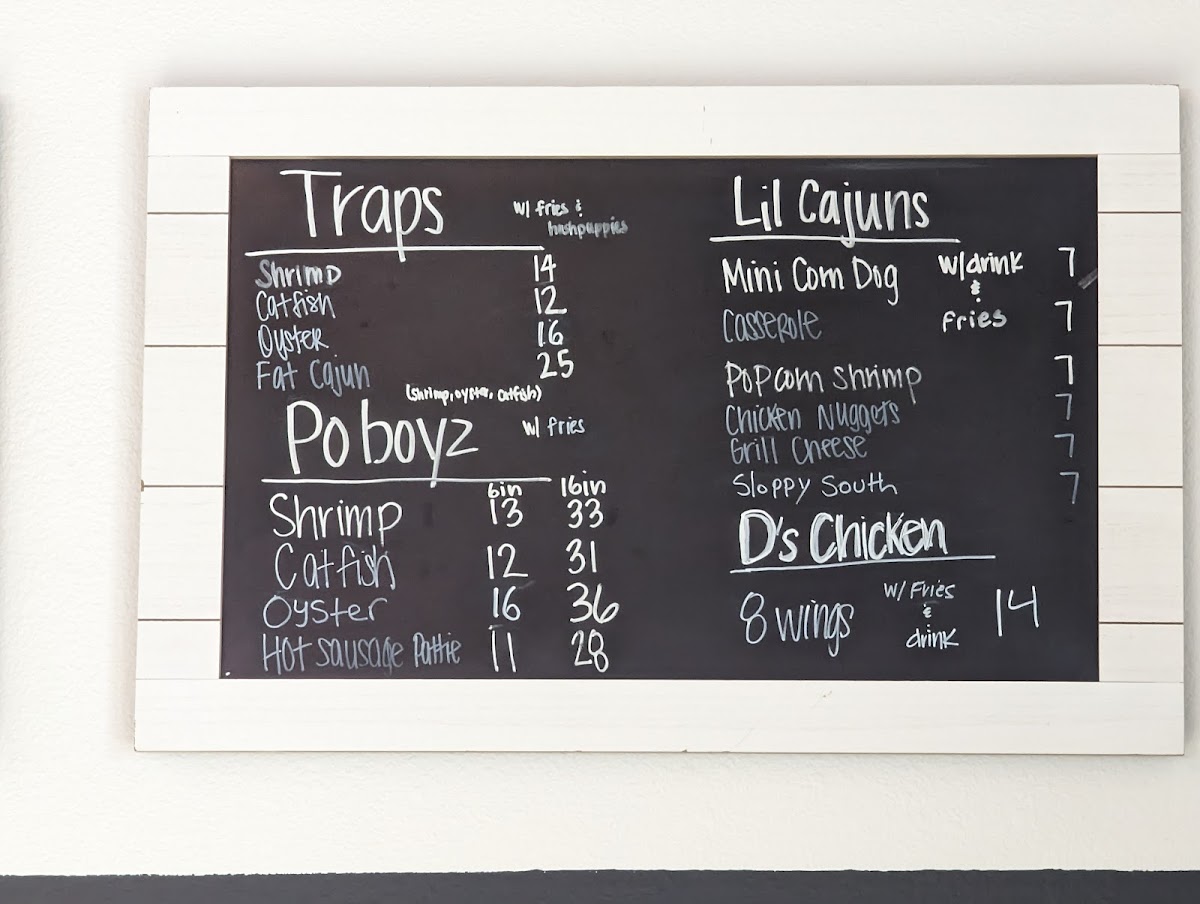 Traps w/ fries & hushpuppies
Shrimp 14
Catfish 12
Oyster 16
Fat Cajun 25
(shrimp, oyster, catfish)
Po boyz w/ fries
6in 16in
Shrimp 13 33
Catfish 12 31
Oyster 16 36
Hot sausage Pattie 11 28
Lil Cajuns
Mini Corn Dog w/drink 7
&
Casserole fries 7
Popcorn Shrimp 7
Chicken Nuggets 7
Grill Cheese 7
Sloppy South 7
D's Chicken
8 wings w/ Fries & drink 14